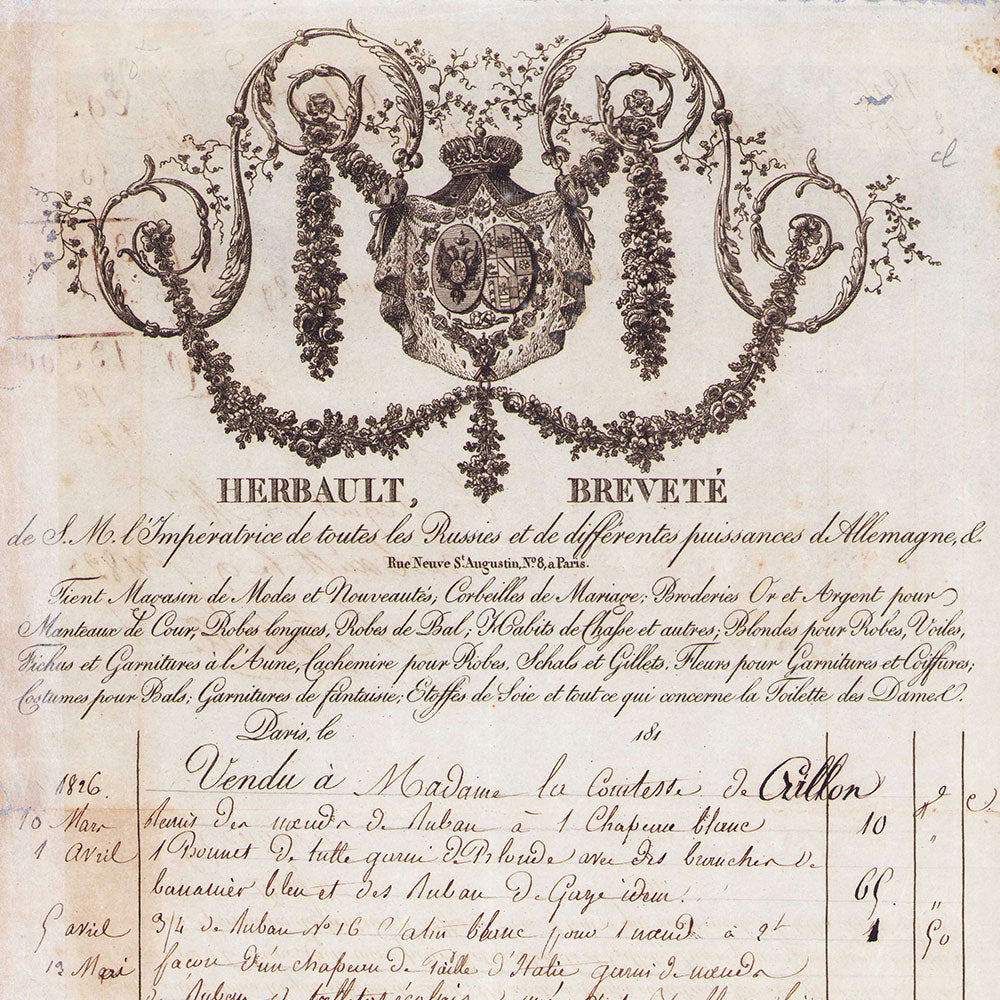 HERBAULT, BREVETÉ
de S. M. l'Impératrice de toutes les Russies et de différentes puissances d'Allemagne, &.
Rue Neuve St. Augustin, No. 8, a Paris.
Tient Magasin de Modes et Nouveautés, Corbeilles de Mariage; Broderies Or et Argent pour
Manteaux de Cour, Robes longues, Robes de Bal; Habits de Chasse et autres; Blondes pour Robes, Voiles,
Fichus et Garnitures à l'Aune, Cachemire pour Robes, Schals et Gillets, Fleurs pour Garnitures et Coiffures;
Costumes pour Bals; Garnitures de fantaisie; Etoffes de Soie et tout ce qui concerne la Toilette des Dames.
Paris, le 181
1826. Vendu à Madame la Comtesse de Crillon
10 Mars des nœuds de Ruban à 1 Chapeau blanc 10 "
1 Avril 1 Bonnet de tulle garni de Blonde avec des branches de
bananier bleu et des Ruban de Gaze idem. 65. "
5 avril 3/4 de Ruban No 16 Satin blanc pour 1 nœud à 2f 1 50
13 Mai façon d'un chapeau de Paille d'Italie garni de nœuds
de Ruban